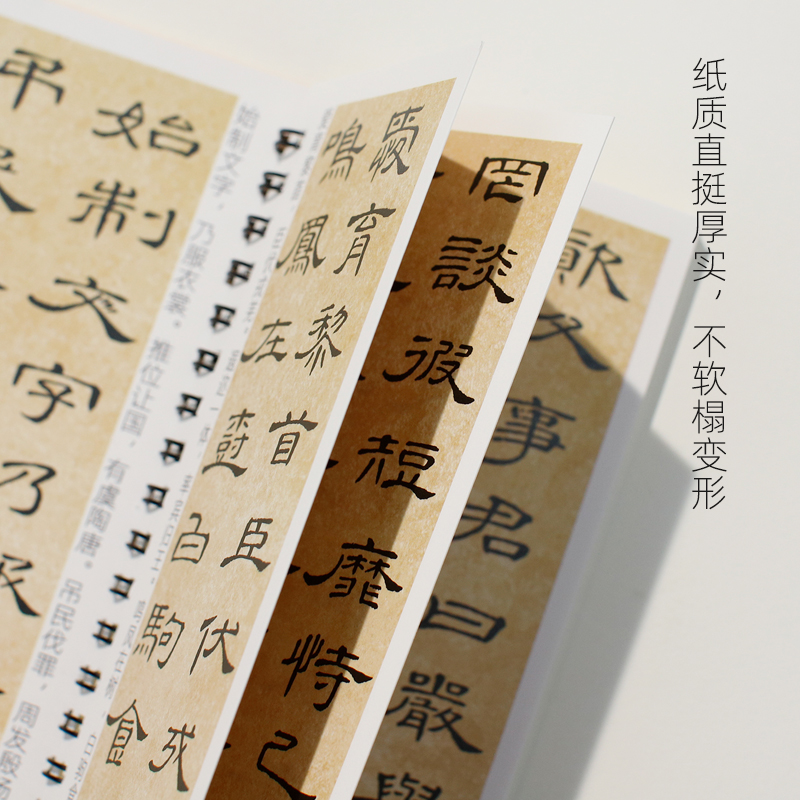 纸质直挺厚实，不软榻变形
父事君曰嚴與
罔談彼短靡恃己
愛育黎首臣伏戎
鳴鳳在樹白駒食
始制文字，乃服衣裳。推位让国，有虞陶唐。吊民伐罪，周发殷汤
始制文字乃服
弔民